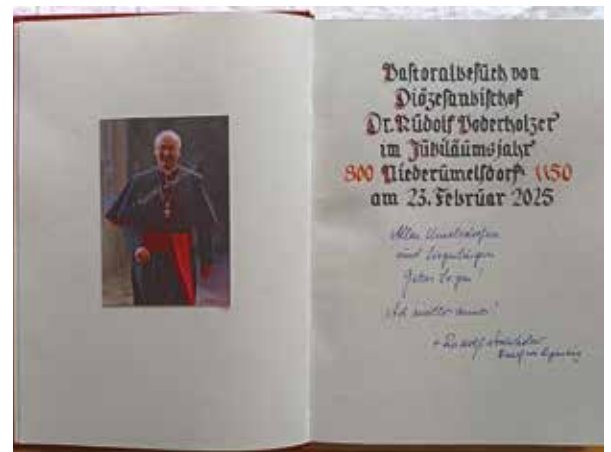 Pastoralbesuch von
Diözesanbischof
Dr. Rudolf Voderholzer
im Jubiläumsjahr
800 Niederumelsdorf 1150
am 23. Februar 2025
Allen
und
Gottes Segen!
Ad multos annos!
+ Rudolf Voderholzer
Bischof von Regensburg